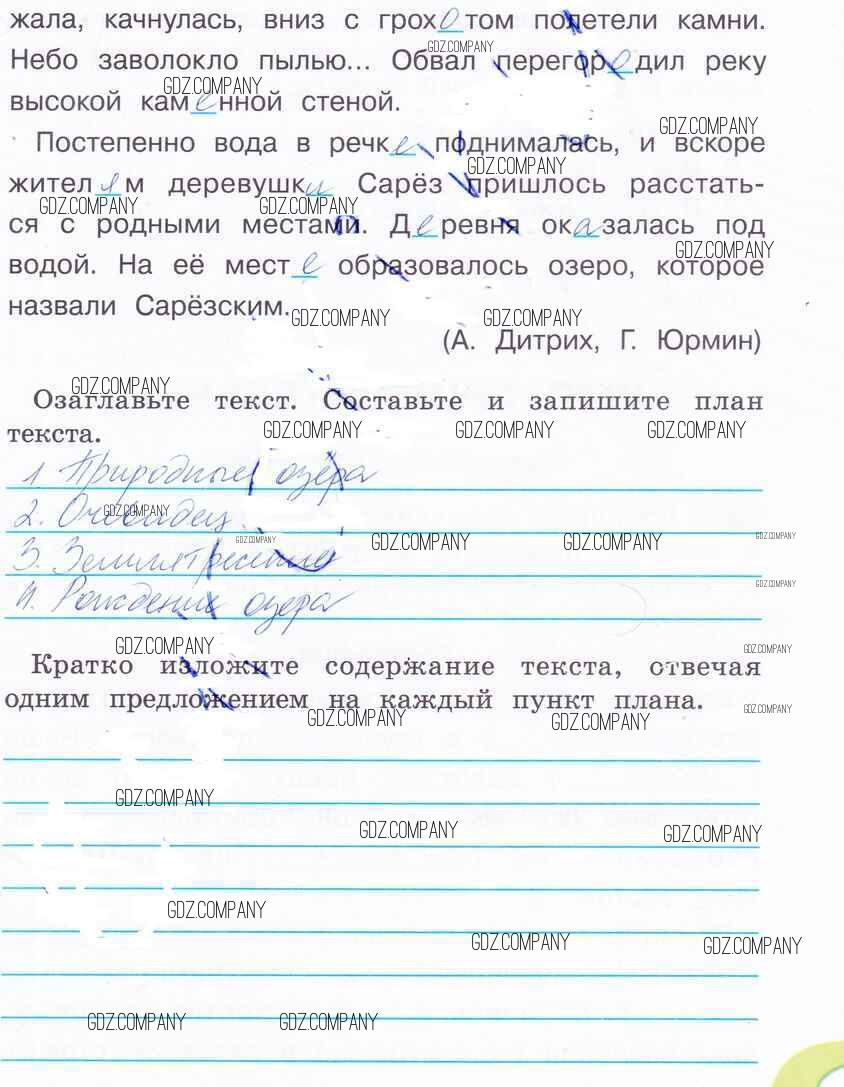 жала, качнулась, вниз с грохотом полетели камни.
GDZ.COMPANY
Небо заволокло пылью... Обвал перегородил реку
GDZ.COMPANY
высокой каменной стеной.
GDZ.COMPANY
Постепенно вода в речке поднималась, и вскоре
GDZ.COMPANY
жителям деревушки Сарёз пришлось расстать-
GDZ.COMPANY GDZ.COMPANY
ся с родными местами. Деревня оказалась под
GDZ.COMPANY
водой. На её месте образовалось озеро, которое
назвали Сарёзским.
GDZ.COMPANY GDZ.COMPANY
(А. Дитрих, Г. Юрмин)
GDZ.COMPANY
Озаглавьте текст. Составьте и запишите план
GDZ.COMPANY GDZ.COMPANY GDZ.COMPANY
текста.
1 Природные озёра
2. Очевидец.
GDZ.COMPANY
GDZ.COMPANY GDZ.COMPANY GDZ.COMPANY GDZ.COMPANY
3. Землетресение
GDZ.COMPANY
4. Рождение озера
GDZ.COMPANY GDZ.COMPANY
Кратко изложите содержание текста, отвечая
одним предложением на каждый пункт плана.
GDZ.COMPANY GDZ.COMPANY GDZ.COMPANY
GDZ.COMPANY
GDZ.COMPANY GDZ.COMPANY
GDZ.COMPANY
GDZ.COMPANY GDZ.COMPANY
GDZ.COMPANY GDZ.COMPANY